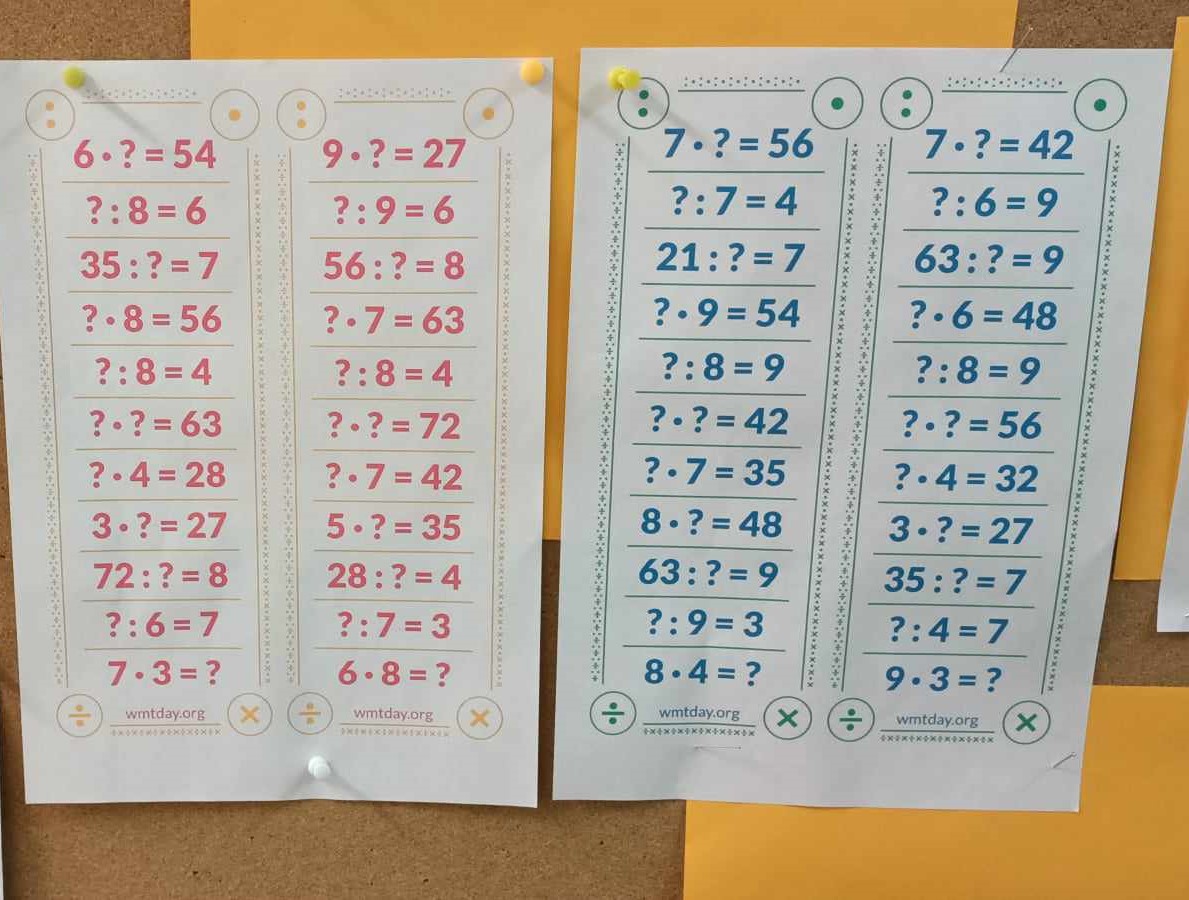 6 · ? = 54
? : 8 = 6
35 : ? = 7
? · 8 = 56
? : 8 = 4
? · ? = 63
? · 4 = 28
3 · ? = 27
72 : ? = 8
? : 6 = 7
7 · 3 = ?
wmtday.org
9 · ? = 27
? : 9 = 6
56 : ? = 8
? · 7 = 63
? : 8 = 4
? · ? = 72
? · 7 = 42
5 · ? = 35
28 : ? = 4
? : 7 = 3
6 · 8 = ?
wmtday.org
7 · ? = 56
? : 7 = 4
21 : ? = 7
? · 9 = 54
? : 8 = 9
? · ? = 42
? · 7 = 35
8 · ? = 48
63 : ? = 9
? : 9 = 3
8 · 4 = ?
wmtday.org
7 · ? = 42
? : 6 = 9
63 : ? = 9
? · 6 = 48
? : 8 = 9
? · ? = 56
? · 4 = 32
3 · ? = 27
35 : ? = 7
? : 4 = 7
9 · 3 = ?
wmtday.org